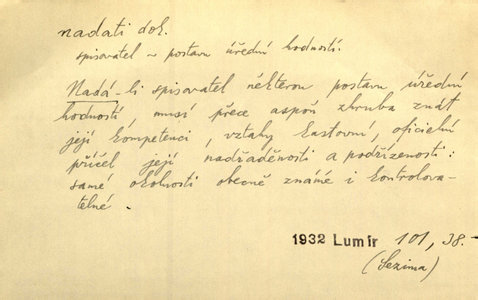 nadati dok.
spisovatel ~ postavu úřední hodností.
Nadá-li spisovatel některou postavu úřední
hodností musí přece aspoň zhruba znát
její kompetenci, vztahy kastovní, oficielní
příčel její nadřáděnosti a podřízenosti:
samé okolnosti obecně známé i kontrolova-
telné.
1932 Lumír 101, 38.-
(Sezima)